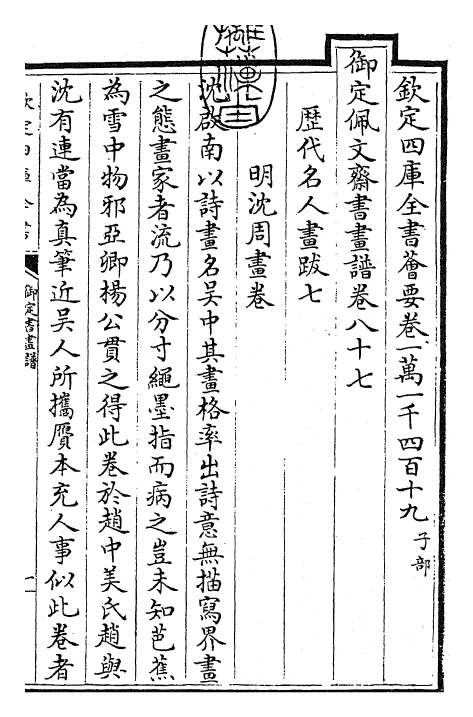 欽定四庫全書薈要卷一萬一千四百十九 子部
御定佩文齋書畫譜卷八十七
歷代名人畫跋七
明沈周畫卷
沈啟南以詩畫名吳中其畫格率出詩意無描寫界畫
之態畫家者流乃以分寸繩墨指而病之豈未知芭蕉
為雪中物邪亞卿楊公貫之得此卷於趙中美氏趙與
沈有連當為真筆近吳人所攜贋本充人事似此卷者
欽定四庫全書
御定書畫譜
一